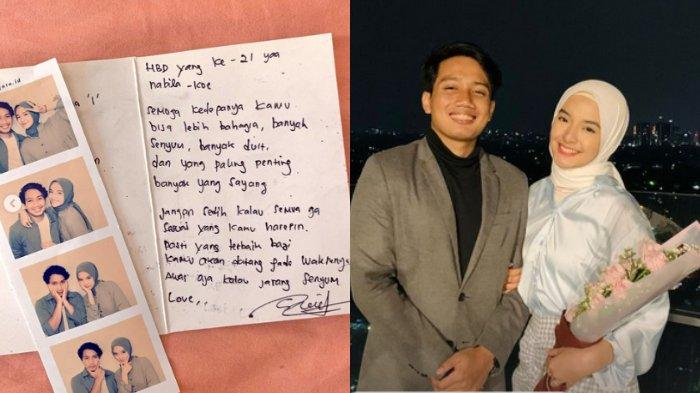 HBD yang ke -21 yaa
nabila -koe
semoga kedepanya kamu
bisa lebih bahagia, banyak
senyum, banyak duit,
dan yang paling penting
banyak yang sayang
Jangan sedih kalau semua ga
sesuai yang kamu harepin.
Pasti yang terbaik bagi
kamu akan datang pada waktunya
Awas aja kalau jarang senyum
Love,,